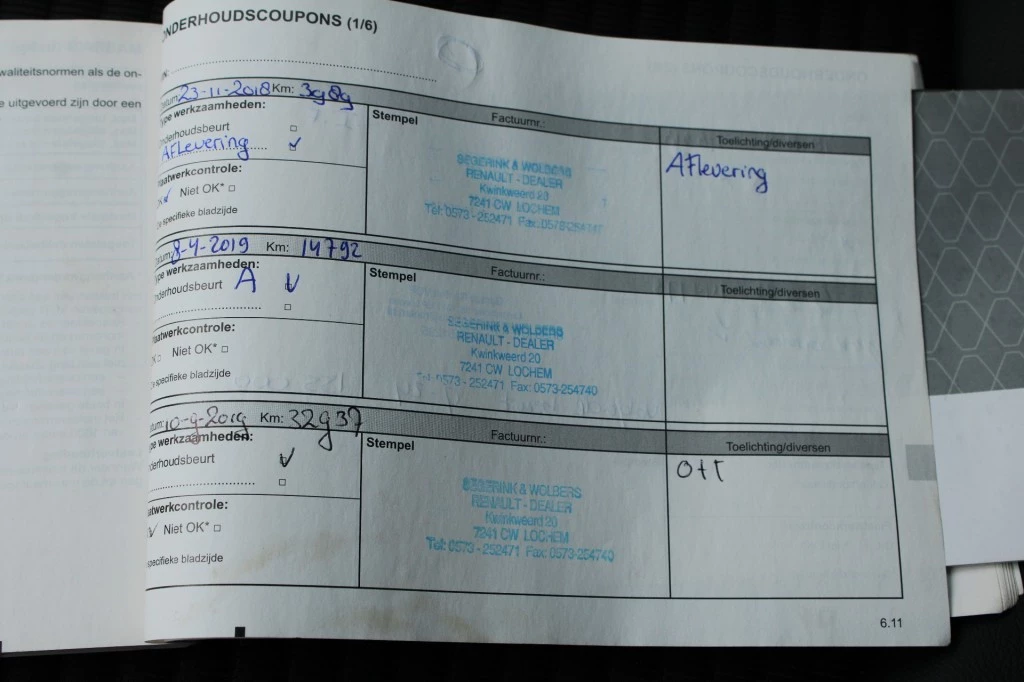 waliteitsnormen als de on-
e uitgevoerd zijn door een
NDERHOUDSCOUPONS (1/6)
23-11-2018 Km: 3989
ype werkzaamheden:
Stempel
Factuurnr.:
Toelichting/diversen
nderhoudsbeurt □
AFLevering ✓
Aflevering
aatwerkcontrole:
✓ Niet OK* □
e specifieke bladzijde
SEGERINK & WOLBERS
RENAULT - DEALER
Kwinkweerd 20
7241 CW LOCHEM
Tel: 0573 - 252471 Fax: 0573-254740
8-4-2019 Km: 14792
ype werkzaamheden:
Stempel
Factuurnr.:
Toelichting/diversen
nderhoudsbeurt A ✓
□
aatwerkcontrole:
K □ Niet OK* □
e specifieke bladzijde
SEGERINK & WOLBERS
RENAULT - DEALER
Kwinkweerd 20
7241 CW LOCHEM
Tel: 0573 - 252471 Fax: 0573-254740
tum: 10-9-2019 Km: 32937
pe werkzaamheden:
Stempel
Factuurnr.:
Toelichting/diversen
derhoudsbeurt ✓
□
atwerkcontrole:
✓ Niet OK* □
specifieke bladzijde
SEGERINK & WOLBERS
RENAULT - DEALER
Kwinkweerd 20
7241 CW LOCHEM
Tel: 0573 - 252471 Fax: 0573-254740
6.11